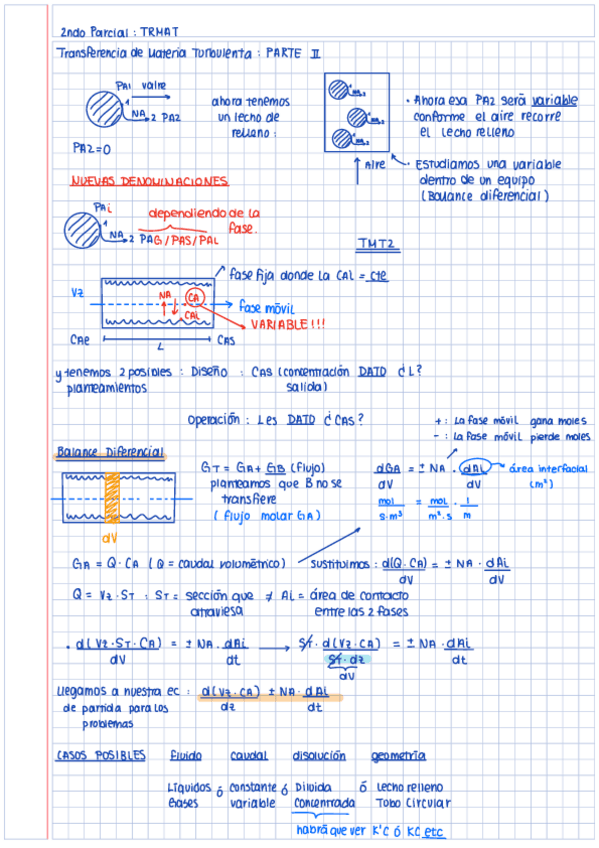 2ndo Parcial : TRMAT
Transferencia de Materia Turbulenta : PARTE II
PAi vaire
1
NA 2 PA2
PA2=0
ahora tenemos
un lecho de
relleno :
NA 2
NA 2
NA 2
Aire
· Ahora esa PA2 será variable
conforme el aire recorre
el lecho relleno
· Estudiamos una variable
dentro de un equipo
(Balance diferencial)
NUEVAS DENOMINACIONES
PAi
1
NA 2 PAG/PAS/PAL
dependiendo de la
fase.
TMT2
fase fija donde la CAi = cte
Vz
NA
CA
CAi
fase móvil
VARIABLE!!!
CAe
L
CAS
y tenemos 2 posibles : Diseño : CAS (concentración DATO ¿L?
planteamientos salida)
Operación : L es DATO ¿CAS?
+ : La fase móvil gana moles
- : La fase móvil pierde moles
Balance Diferencial
dV
GT = GA + GB (flujo)
planteamos que B no se
transfiere
( flujo molar GA )
dGA = ± NA · dAi
dV dV
área interfacial
(m²)
mol = mol · 1
s·m³ m²·s m
GA = Q · CA ( Q = caudal volumétrico)
sustituimos : d(Q·CA) = ± NA · dAi
dV dV
Q = Vz · ST : ST = sección que ≠ Ai = área de contacto
atraviesa entre las 2 fases
· d(Vz·ST·CA) = ± NA · dAi
dV dt
ST · d(Vz·CA) = ± NA · dAi
ST · dz dt
dV
Llegamos a nuestra ec : d(Vz·CA) ± NA · dAi
de partida para los dz dt
problemas
CASOS POSIBLES fluido caudal disolución geometría
Líquidos ó constante ó Diluida ó Lecho relleno
Gases variable Concentrada Tubo Circular
habrá que ver K'C ó KC etc